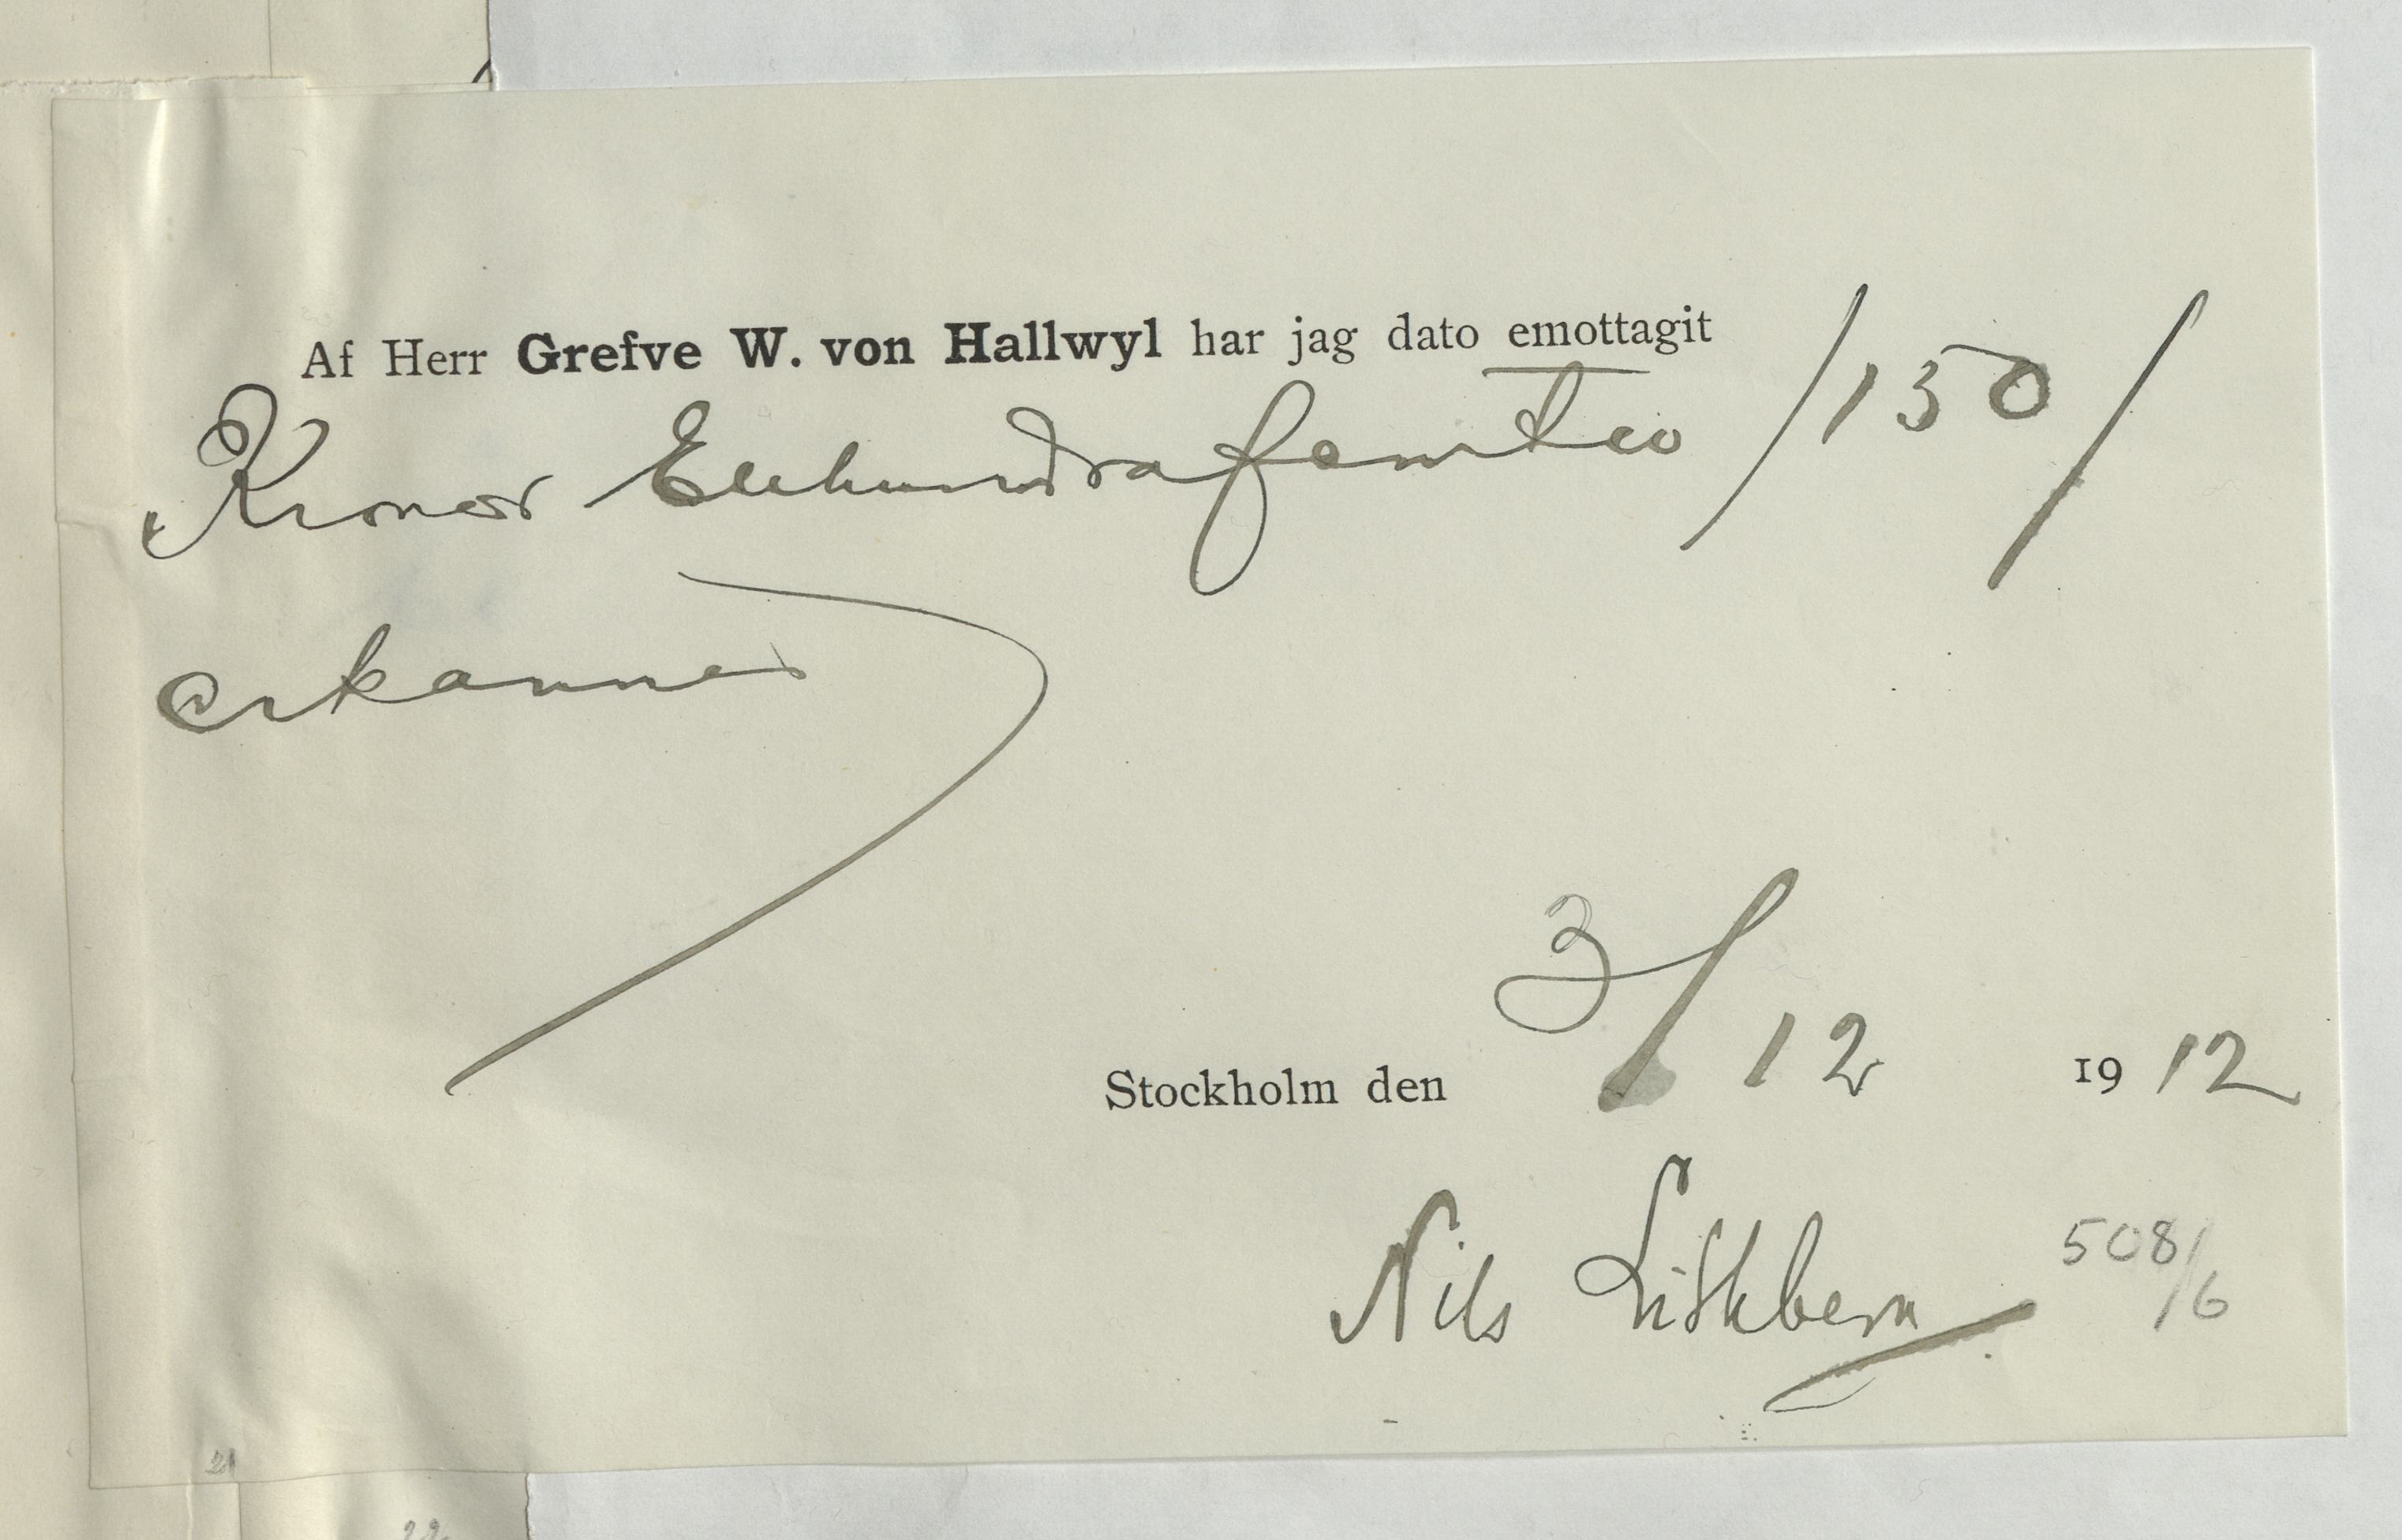 Af Herr Grefve W. von Hallwyl har jag dato emottagit
Kronor Etthundrafemtio /150/
erkännes
Stockholm den 3/12 1912
Nils
508/6
21
22